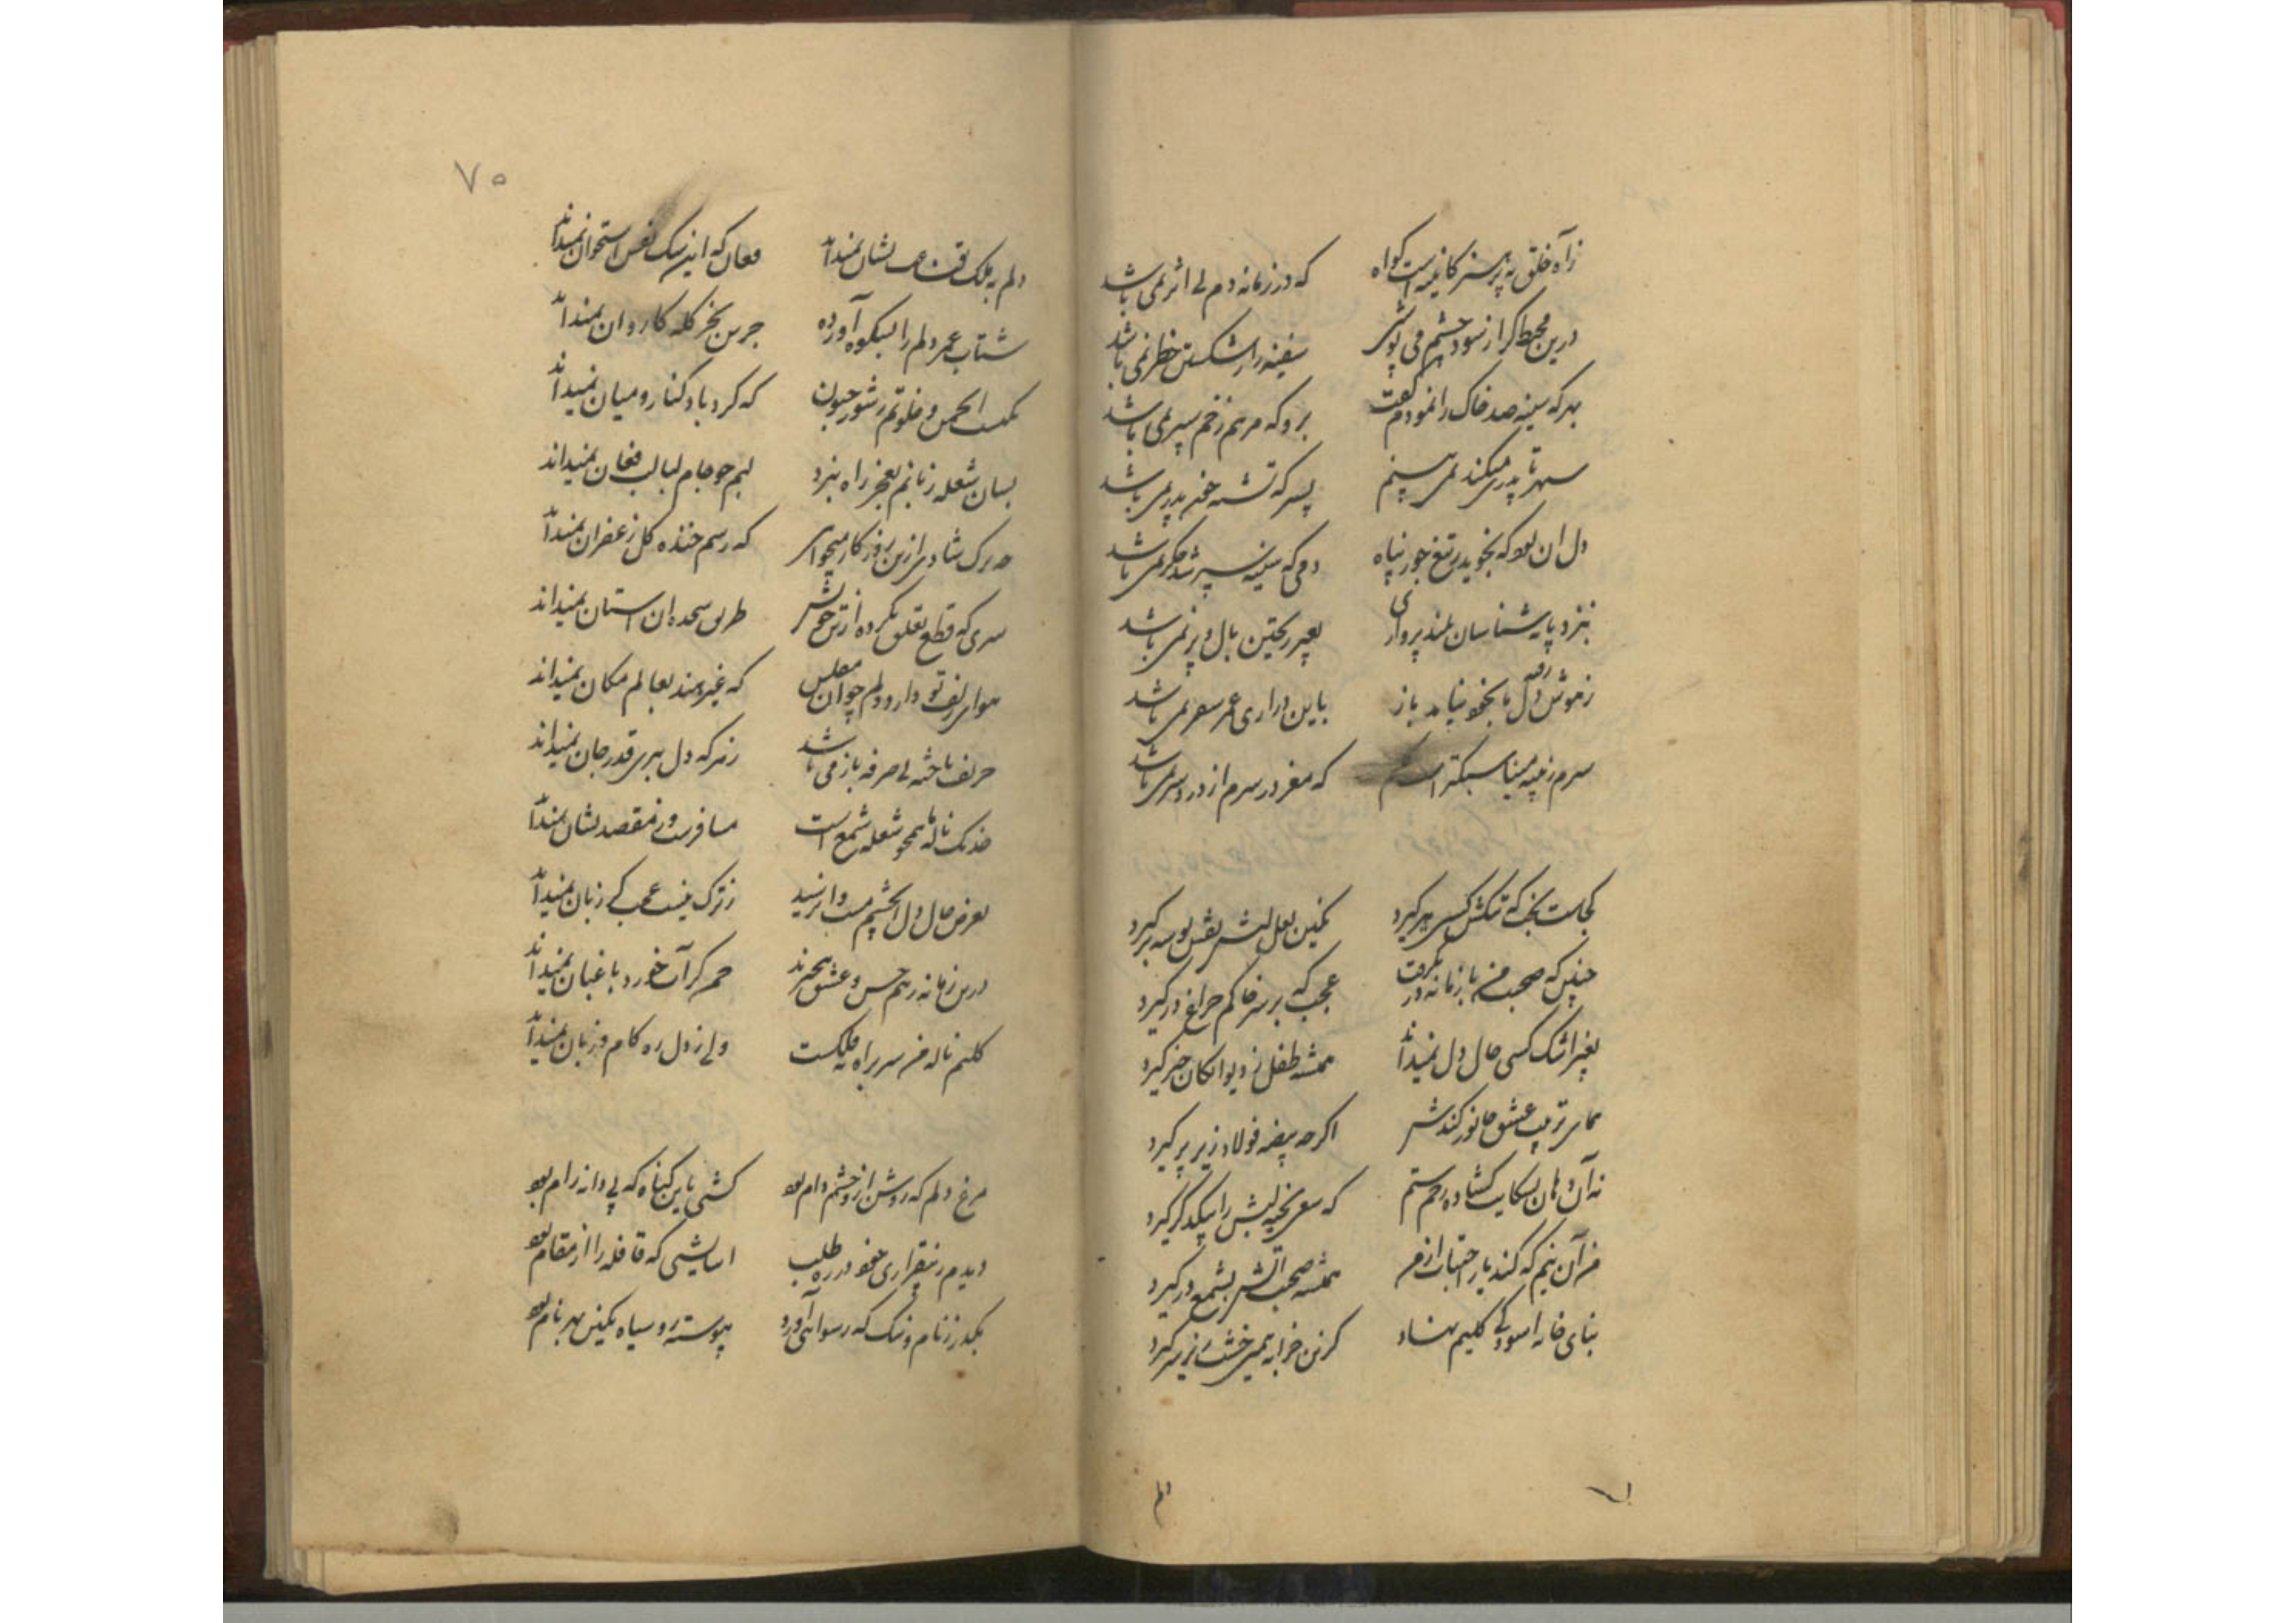 ز آه خلق بپرهیز کاینه است گواه که در زمانه دم بی اثر نمی باشد
درین محیط گر از سود چشم می پوشی سفینه را ز شکستن خطر نمی باشد
بهر که سینه صد چاک را نمودم گفت برو که مرهم زخم سپر نمی باشد
سپهر تا پدری میکند نمی بینم پسر که تشنه خون پدر نمی باشد
دل ان بود که نجوید ز تیغ جور پناه دمی که سینه سپر شد جگر نمی باشد
بنزد پایه شناسان بلند پروازی بغیر ریختن بال و پر نمی باشد
ز هوش رفته دل ما بخود نیامد باز باین درازی عمر سفر نمی باشد
سرم ز پنبه مینا سبکتر است که مغز در سرم از درد سر نمی باشد
کجاست بخت که تنگش کسی ببر گیرد نگین لعل لبش نقش بوسه بر گیرد
چنین که صحبت من با زمانه در نگرفت عجب که بر سر خاکم چراغ در گیرد
بغیر اشک کسی حال دل نمیداند همیشه طفل ز دیوانگان خبر گیرد
همای تربیت عشق جانور کندش اگر چه بیضه فولاد زیر پر گیرد
نه آن دهان بشکایت گشاده زخم ستم که سعی بخیه لبش را بیکدگر گیرد
من آن نیم که کند یار اجتناب از من همیشه صحبت آتش بشمع در گیرد
بنای خانه اسودگی کلیم نهاد کزین خرابه همین خشت زیر سر گیرد
دلم
۷۵
دلم به ملک قناعت نشان نمیداند فغان که این سگ نفس استخوان نمیداند
شتاب عمر دلم را بشکوه آورده جرس بجز گله کاروان نمیداند
یکیست انجمن و خلوتم ز شور جنون که گردباد کنار و میان نمیداند
بسان شعله زبانم بغیر راه نبرد لبم چو جام لبالب فغان نمیداند
چه برگ شادی ازین روزگار میخواهی که رسم خنده گل زعفران نمیداند
سری که قطع تعلق نکرده از تن خویش طریق سجده ان استان نمیداند
هوای زلف تو دارد دلم چو آن مفلس که غیر هند بعالم مکان نمیداند
حریف باخته بی صرفه باز می باشد ز من که دل ببری قدر جان نمیداند
خدنگ ناله ما همچو شعله شمع است مسافرست و ز مقصد نشان نمیداند
بعرض حال دل ان چشم مست وا نرسید ز ترک نیست عجب گر زبان نمیداند
درین زمانه ز هم حسن و عشق بیخبرند چمن گر آب خورد باغبان نمیداند
کلیم ناله من سر براه بیکاریست ولی ز دل ره کام و زبان نمیداند
مرغ دلم که روشن ازو چشم دام بود کشتی باین گناه که بی دانه رام بود
دیدم ز بیقراری خود در ره طلب اسایشی که قافله را از مقام بود
بگذر ز نام و ننگ که رسوائی آورد پیوسته رو سیاه نگین بهر نام بود